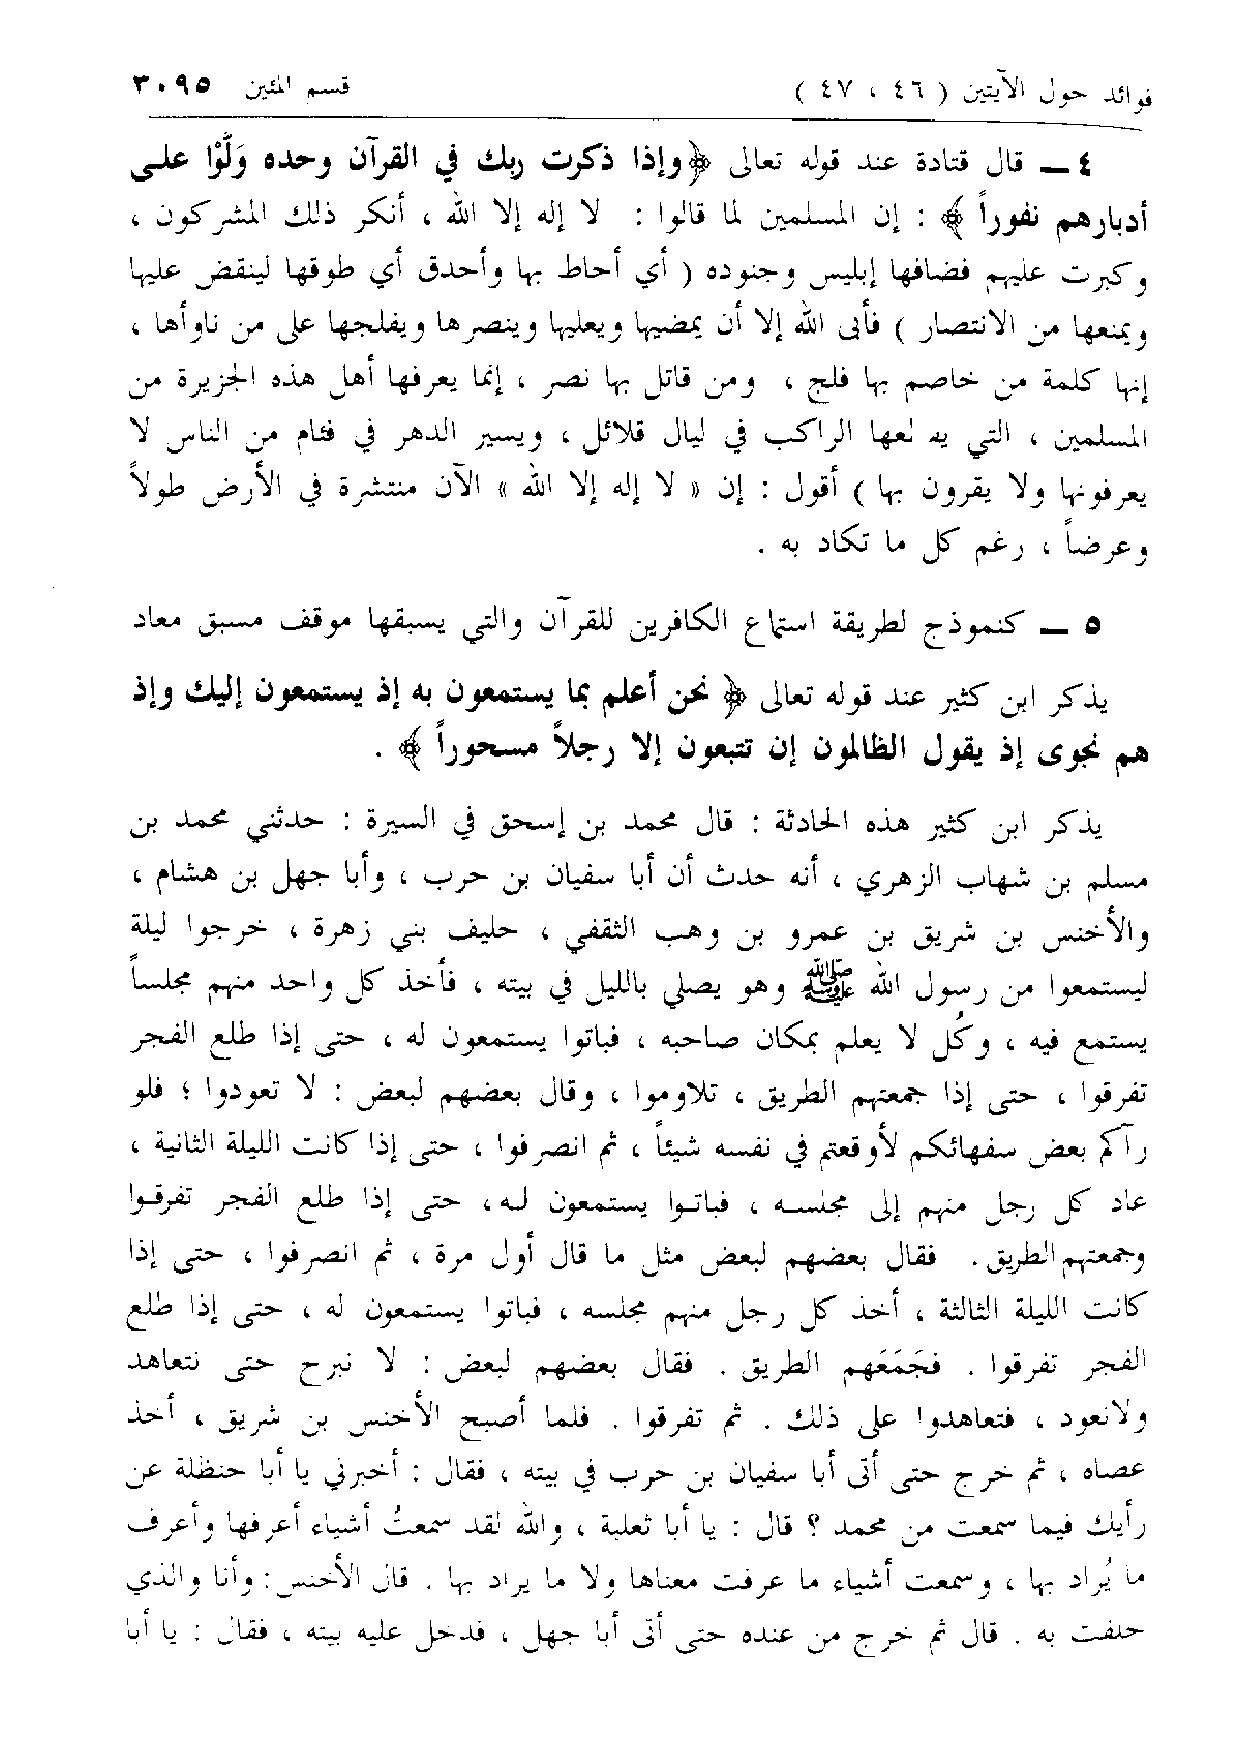 فوائد حول الآيتين ( ٤٦ ، ٤٧ ) قسم المئين ٣٠٩٥
٤ ــ قال قتادة عند قوله تعالى ﴿وإذا ذكرت ربك في القرآن وحده وَلَّوْا على
أدبارهم نفوراً ﴾ : إن المسلمين لما قالوا : لا إله إلا الله ، أنكر ذلك المشركون ،
وكبرت عليهم فضافها إبليس وجنوده ( أي أحاط بها وأحدق أي طوقها لينقض عليها
ويمنعها من الانتصار ) فأبى الله إلا أن يمضيها ويعليها وينصرها ويفلجها على من ناوأها ،
إنها كلمة من خاصم بها فلج ، ومن قاتل بها نصر ، إنما يعرفها أهل هذه الجزيرة من
المسلمين ، التي يه لعها الراكب في ليال قلائل ، ويسير الدهر في فئام من الناس لا
يعرفونها ولا يقرون بها ) أقول : إن « لا إله إلا الله » الآن منتشرة في الأرض طولاً
وعرضاً ، رغم كل ما تكاد به .
٥ ــ كنموذج لطريقة استماع الكافرين للقرآن والتي يسبقها موقف مسبق معاد
يذكر ابن كثير عند قوله تعالى ﴿ نحن أعلم بما يستمعون به إذ يستمعون إليك وإذ
هم نجوى إذ يقول الظالمون إن تتبعون إلا رجلاً مسحوراً ﴾ .
يذكر ابن كثير هذه الحادثة : قال محمد بن إسحق في السيرة : حدثني محمد بن
مسلم بن شهاب الزهري ، أنه حدث أن أبا سفيان بن حرب ، وأبا جهل بن هشام ،
والأخنس بن شريق بن عمرو بن وهب الثقفي ، حليف بني زهرة ، خرجوا ليلة
ليستمعوا من رسول الله ﷺ وهو يصلي بالليل في بيته ، فأخذ كل واحد منهم مجلساً
يستمع فيه ، وكُل لا يعلم بمكان صاحبه ، فباتوا يستمعون له ، حتى إذا طلع الفجر
تفرقوا ، حتى إذا جمعتهم الطريق ، تلاوموا ، وقال بعضهم لبعض : لا تعودوا ؛ فلو
رآكم بعض سفهائكم لأوقعتم في نفسه شيئاً ، ثم انصرفوا ، حتى إذا كانت الليلة الثانية ،
عاد كل رجل منهم إلى مجلسه ، فباتوا يستمعون له ، حتى إذا طلع الفجر تفرقوا
وجمعتهم الطريق . فقال بعضهم لبعض مثل ما قال أول مرة ، ثم انصرفوا ، حتى إذا
كانت الليلة الثالثة ، أخذ كل رجل منهم مجلسه ، فباتوا يستمعون له ، حتى إذا طلع
الفجر تفرقوا . فجَمَعَهم الطريق . فقال بعضهم لبعض : لا نبرح حتى نتعاهد
ولانعود ، فتعاهدوا على ذلك . ثم تفرقوا . فلما أصبح الأخنس بن شريق ، أخذ
عصاه ، ثم خرج حتى أتى أبا سفيان بن حرب في بيته ، فقال : أخبرني يا أبا حنظلة عن
رأيك فيما سمعت من محمد ؟ قال : يا أبا ثعلبة ، والله لقد سمعتُ أشياء أعرفها وأعرف
ما يُراد بها ، وسمعت أشياء ما عرفت معناها ولا ما يراد بها . قال الأخنس : وأنا والذي
حلفت به . قال ثم خرج من عنده حتى أتى أبا جهل ، فدخل عليه بيته ، فقال : يا أبا